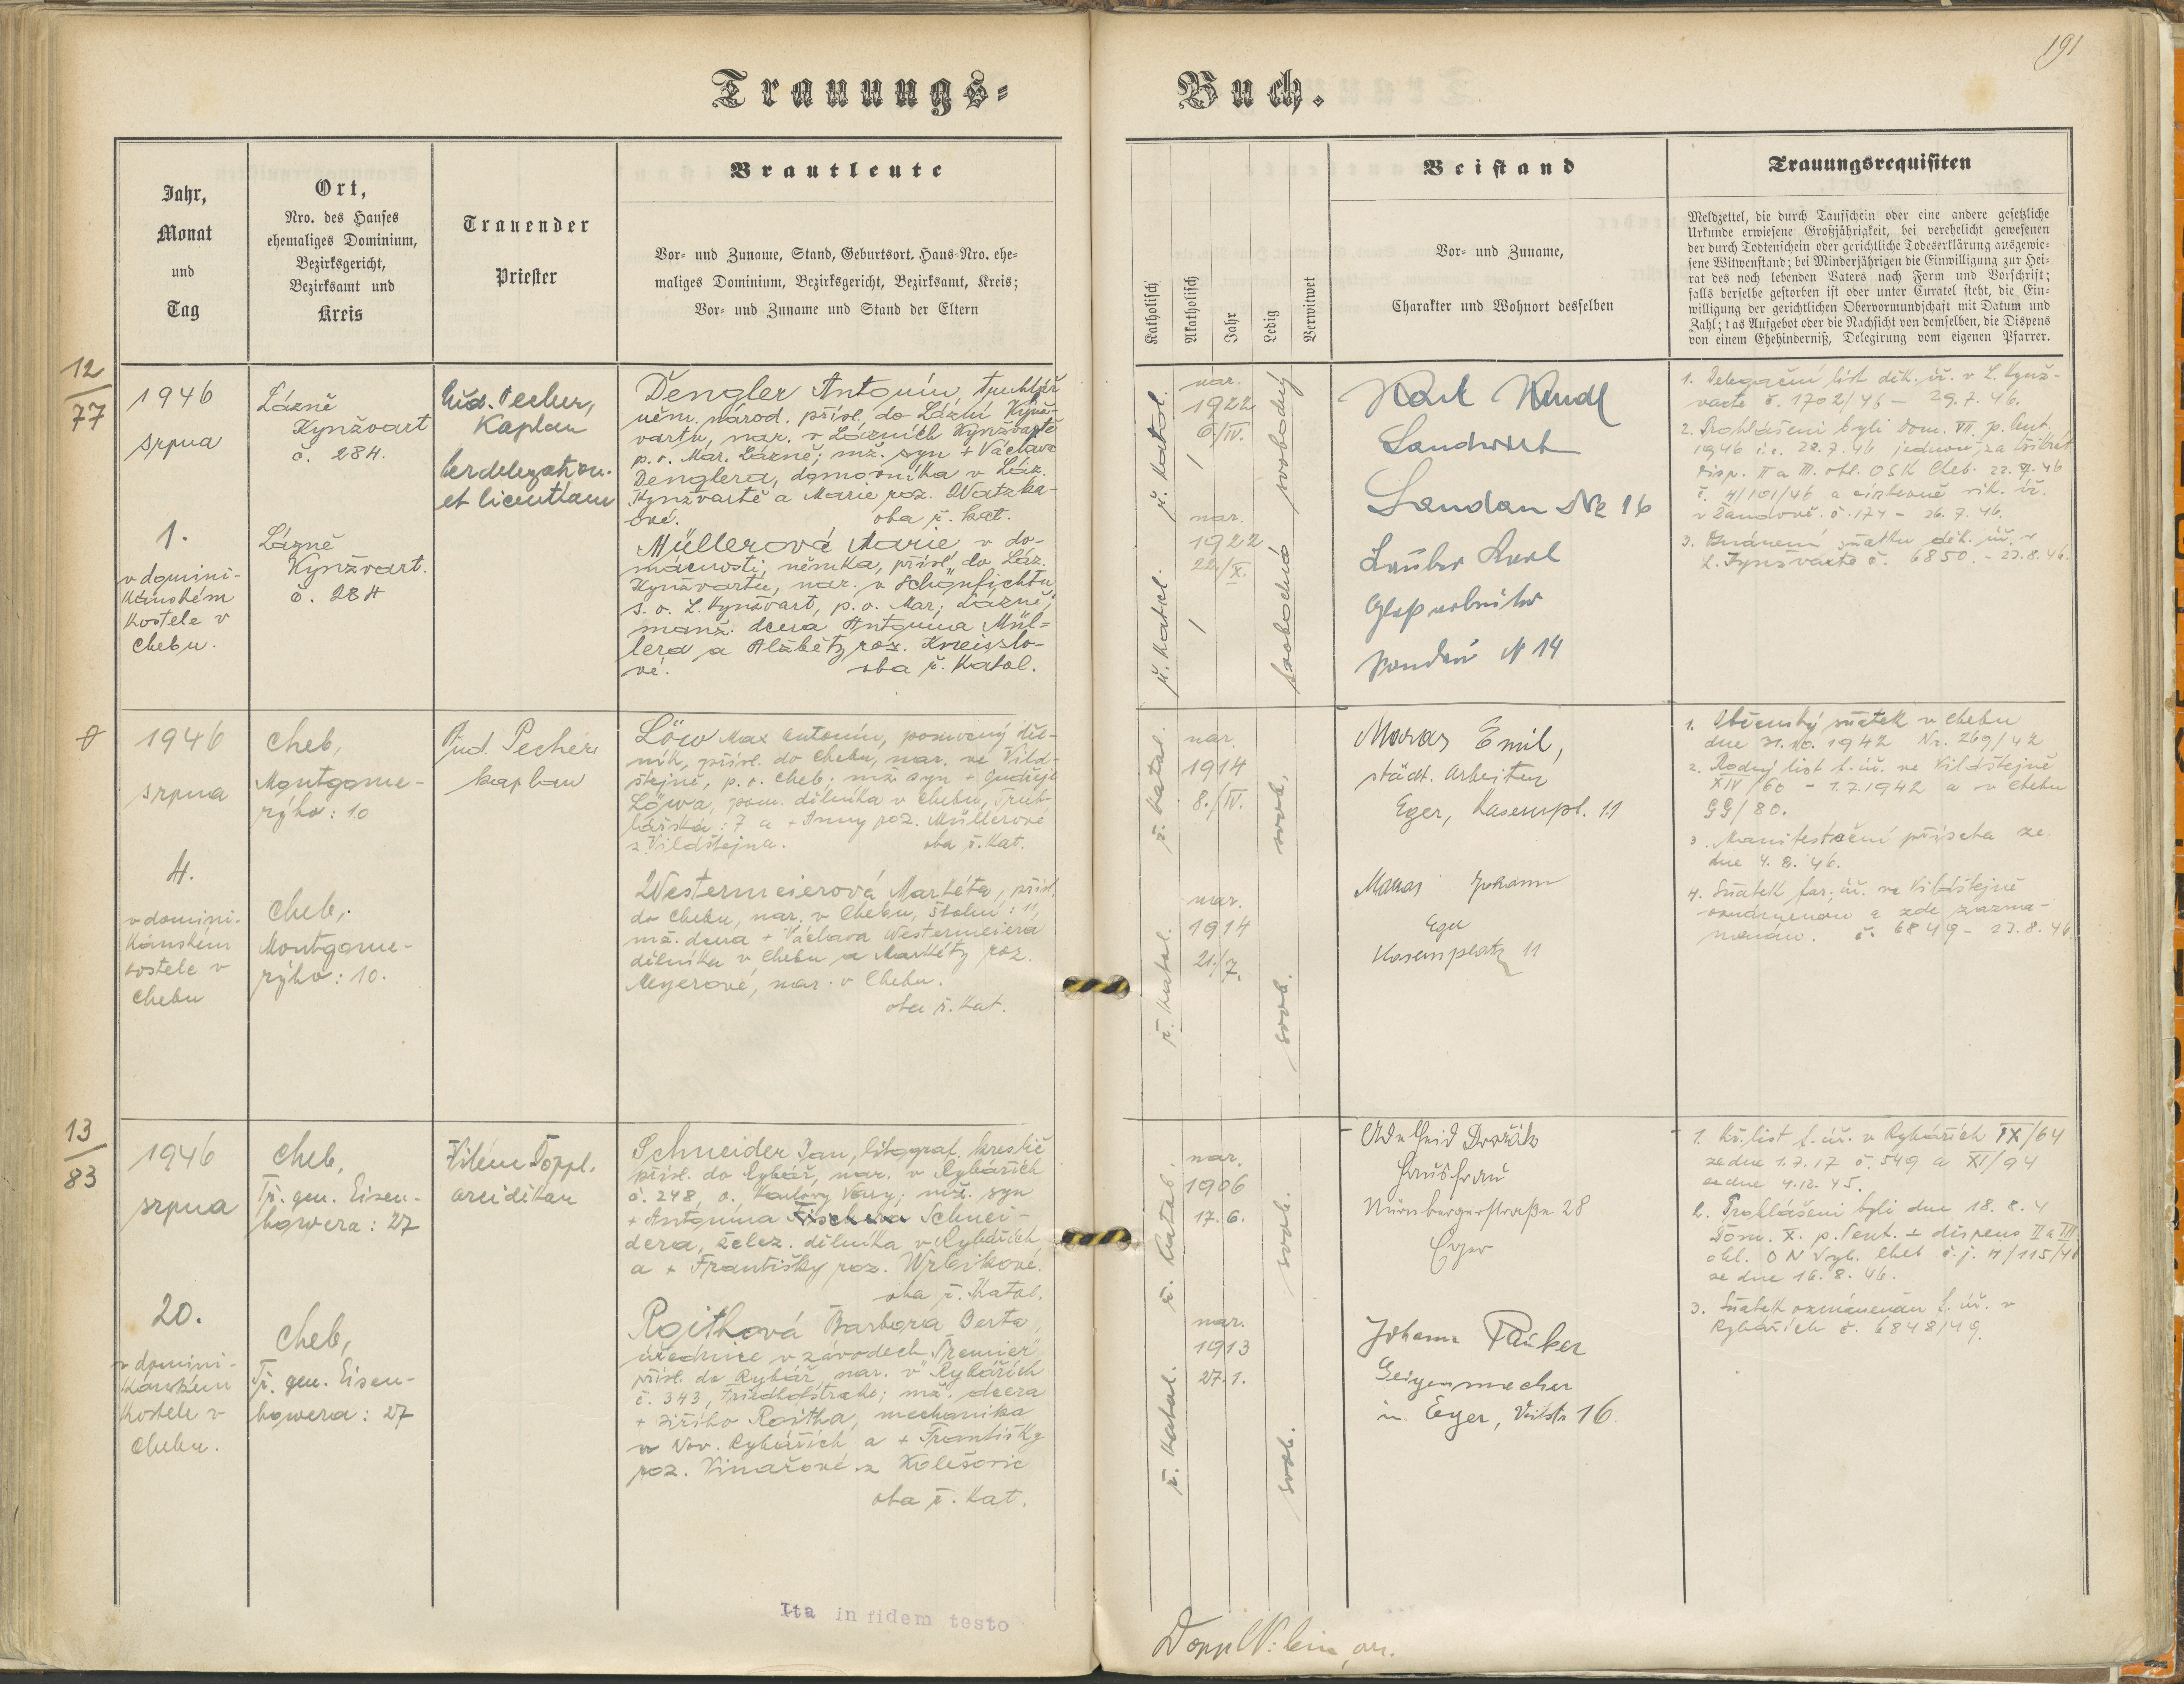 191
Trauungs-
Buch.
Jahr,
Monat
und
Tag
Ort,
Nro. des Hauses
ehemaliges Dominium,
Bezirksgericht,
Bezirksamt und
Kreis
Trauender
Priester
Brautleute
Vor- und Zuname, Stand, Geburtsort. Haus-Nro. ehe-
maliges Dominium, Bezirksgericht, Bezirksamt, Kreis;
Vor- und Zuname und Stand der Eltern
Katholisch
Akatholisch
Jahr
Ledig
Verwitwet
Beistand
Vor- und Zuname,
Charakter und Wohnort desselben
Trauungsrequisiten
Meldzettel, die durch Taufschein oder eine andere gesetzliche
Urkunde erwiesene Großjährigkeit, bei verehelicht gewesenen
der durch Todtenschein oder gerichtliche Todeserklärung ausgewie-
sene Witwenstand; bei Minderjährigen die Einwilligung zur Hei-
rat des noch lebenden Vaters nach Form und Vorschrift;
falls derselbe gestorben ist oder unter Curatel steht, die Ein-
willigung der gerichtlichen Obervormundschaft mit Datum und
Zahl; das Aufgebot oder die Nachsicht von demselben, die Dispens
von einem Ehehinderniß, Delegirung vom eigenen Pfarrer.
12
77
1946
srpna
1.
v domini-
kánském
kostele v
Chebu.
Lázně
Kynžvart
č. 284.
Lázně
Kynžvart.
č. 284
Pecher,
Kaplan
per delegation.
et licentiam
Dengler Antonín, truhlář
něm. národ. přísl. do Lázní Kynž-
vartu, nar. v Lázních Kynžvartě
p. o. Mar. Lázně; mž. syn + Václava
Denglera, domovníka v Láz.
Kynžvartě a Marie roz. Watzka-
ové. oba ř. kat.
Müllerová Marie v do-
mácnosti, němka, přísl. do Láz.
Kynžvartu, nar. v Schönfichtu
s. o. L. Kynžvart, p. o. Mar. Lázně;
manž. dcera Antonína Mül-
lera a Alžběty roz. Kreisslo-
vé. oba ř. katol.
ř. katol.
nar.
1922
6./IV.
svobodný
ř. katol.
nar.
1922
22./X.
svobodná
Karl
Landwirt
Sandau Nr 16
Karl
Glasarbeiter
Sandau N 14
1. Delegační list děk. úř. v L. Kynž-
vartě č. 1702/46 - 29.7.46.
2. Prohlášeni byli Dom. VII. p. Pent.
1946 i.e. 28.7.46 jednou za třikrát
disp. II a III. ohl. OSK Cheb. 22.7.46
č. H/101/46 a církevně vik. úř.
v Žandově. č. 174 - 26.7.46.
3. Oznámení sňatku děk. úř. v
L. Kynžvartě č. 6850. - 23.8.46.
1946
srpna
4.
v domini-
kánském
kostele v
Chebu
Cheb,
Montgome-
ryho: 10
Cheb,
Montgome-
ryho: 10.
Rud. Pecher
kaplan
Löw Max Antonín, pomocný děl-
ník, přísl. do Chebu, nar. ve Vild-
štejně, p. o. Cheb; mž. syn + Ondřeje
Löwa, pom. dělníka v Chebu, Truh-
lářská: 7 a + Anny roz. Müllerové
z Vildštejna. oba ř. kat.
Westermeierová Markéta, přísl.
do Chebu, nar. v Chebu, Školní: 11,
mž. dcera + Václava Westermeiera
dělníka v Chebu a Markéty roz.
Meyerové, nar. v Chebu.
oba ř. kat.
ř. katol.
nar.
1914
8./IV.
svob.
ř. katol.
nar.
1914
21./7.
svob.
Emil,
städt. Arbeiter
Eger, Kasernpl. 11
Johann
Eger
Kasernplatz 11
1. Občanský sňatek v Chebu
dne 31.10.1942 Nr. 269/42
2. Rodný list f. úř. ve Vildštejně
XIV/60 - 1.7.1942 a v Chebu
GG/80.
3. Manifestační přísaha ze
dne 4.8.46.
4. Sňatek far. úř. ve Vildštejně
oznámenou a zde zazna-
č. 6849 - 23.8.46.
13
83
1946
srpna
20.
v domini-
kánském
kostele v
Chebu.
Cheb,
Tř. gen. Eisen-
howera: 27
Cheb,
Tř. gen. Eisen-
howera: 27
Vilém Doppl.
arciděkan
Schneider Jan, litograf. kreslič
přísl. do Rybář, nar. v Rybářích
č. 248, o. Karlovy Vary; mž. syn
+ Antonína Fischera Schnei-
dera, želez. dělníka v Rybářích
a + Františky roz. Wrbikové.
oba ř. katol.
Roithová Barbora Berta,
úřednice v závodech "Premier"
přísl. do Rybář, nar. v Rybářích
č. 343, Friedhofstrabe; mž. dcera
+ Jiřího Roitha, mechanika
v Nov. Rybářích a + Františky
roz. Vinařové z Kolešovic
oba ř. kat.
ř. katol.
nar.
1906
17.6.
svob.
ř. katol.
nar.
1913
27.1.
svob.
Adelheid Dvořák
Hausfrau
Nürnbergerstraße 28
Eger
Johann Fauker
Geigenmacher
in Eger, 16.
1. Kř. list f. úř. v Rybářích IX/64
ze dne 1.7.17 č. 549 a XI/94
ze dne 4.12.45.
2. Prohlášeni byli dne 18.8.4
Dom. X. p. Pent. dispens II a III
ohl. ONV Cheb č.j. H/115/46
ze dne 16.8.46.
3. Sňatek oznámenán f. úř. v
Rybářích č. 6848/49.
Ita in fidem testo
Doppl Vilém, arc.